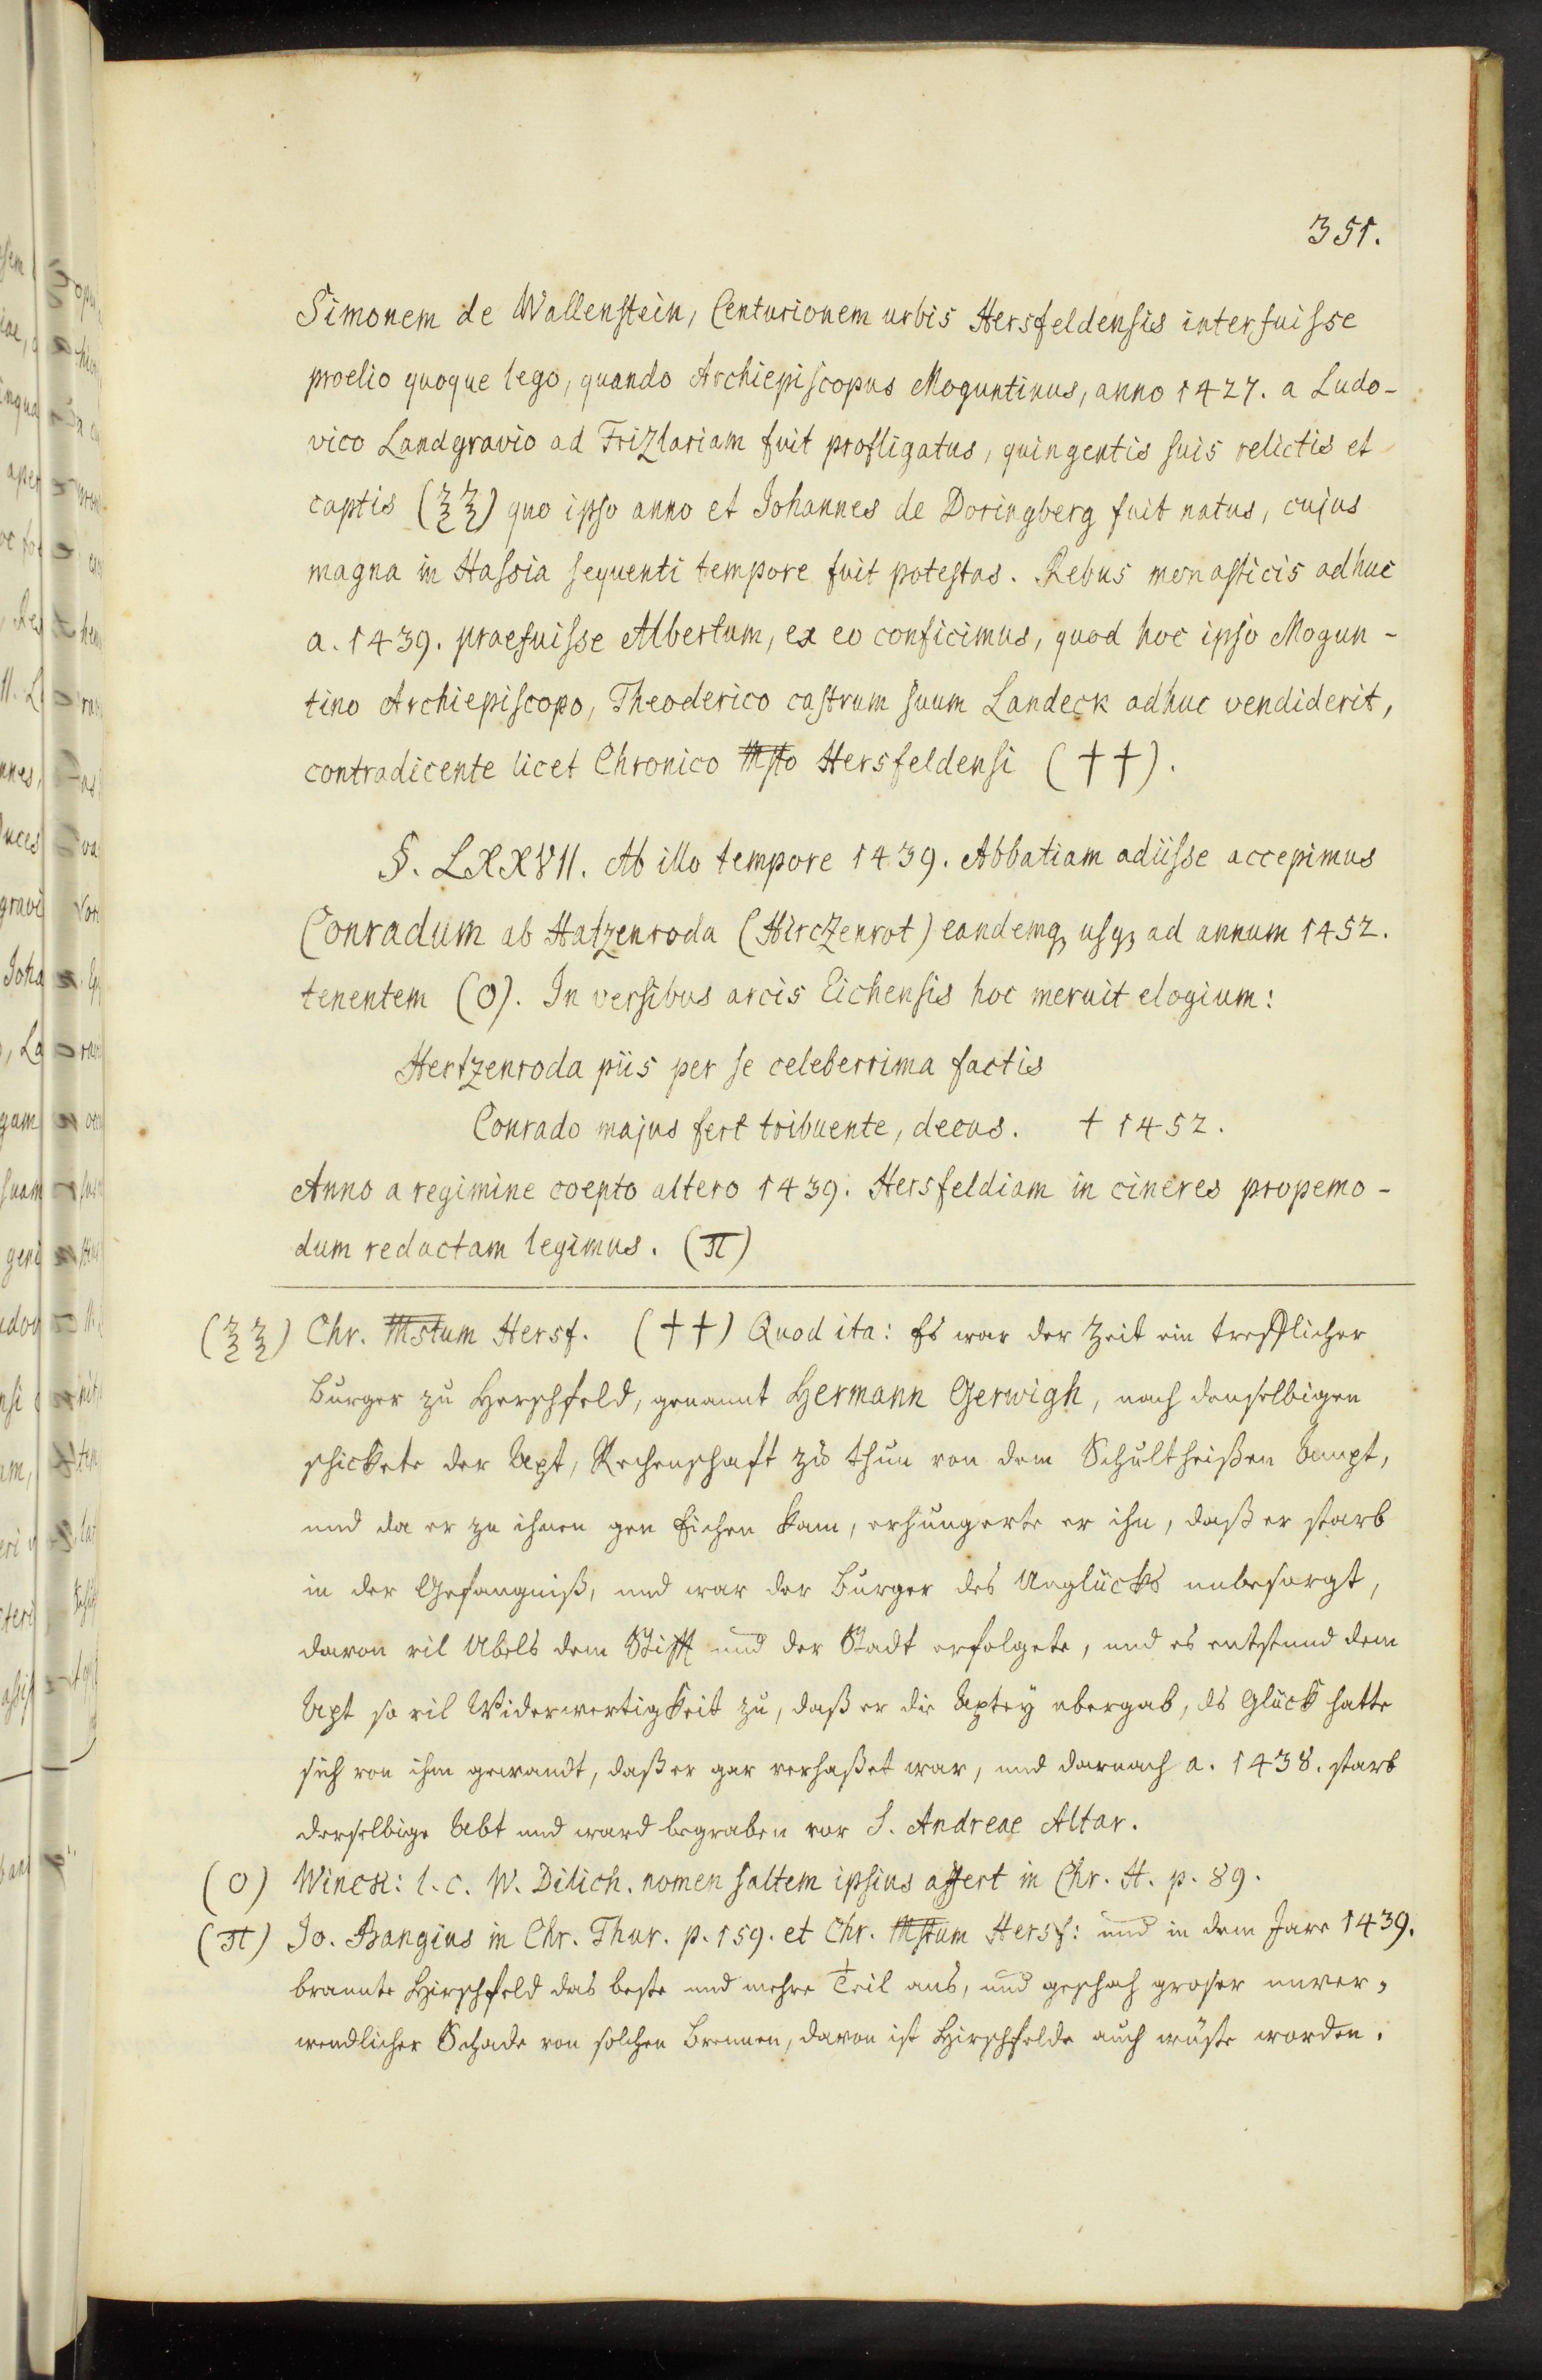 351.
Simonem de Wallenstein, Centurionem urbis Hersfeldensis interfuisse
proelio quoque lego, quando Archiepiscopus Moguntinus, anno 1427. a Ludo-
vico Landgravio ad Frizlariam fuit profligatus, quingentis suis relictis et
captis (ξξ) quo ipso anno et Johannes de Doringberg fuit natus, cujus
magna in Hassia sequenti tempore fuit potestas. Rebus monasticis adhuc
a. 1439. praefuisse Albertum, ex eo conficimus, quod hoc ipso Mogun-
tino Archiepiscopo, Theoderico castrum suum Landeck adhuc vendiderit,
contradicente licet Chronico Msto Hersfeldensi (††).
§. LXXVII. Ab illo tempore 1439. Abbatiam adiisse accepimus
Conradum ab Hatzenroda (Hirczenrot) eandemq usq ad annum 1452.
tenentem (O). In versibus arcis Eichensis hoc meruit elogium:
Hertzenroda piis per se celeberrima factis
Conrado majus fert tribuente, decus. † 1452.
Anno a regimine coepto altero 1439. Hersfeldiam in cineres propemo-
dum redactam legimus. (π)
(ξξ) Chr. Mstum Hersf. (††) Quod ita: Es war der Zeit ein trefflicher
Burger zu Herschfeld, genannt Hermann Gerwigh, nach denselbigen
schickete der Apt, Rechenschaft zu thun von dem Schultheißen Ampt,
und da er zu ihmen gen Eichen kam, erhungerte er ihn, daß er starb
in der Gefangniß, und war der Burger des Unglücks unbesorgt,
davon vil Ubels dem Stifft und der Stadt erfolgete, und es entstund dem
Apt so vil Widerwertigkeit zu, daß er die Aptey ubergab, ds Glück hatte
sich von ihm gewandt, daß er gar verhaßet war, und darnach a. 1438. starb
derselbige Abt und ward begraben vor S. Andreae Altar.
(O) Winck: l. c. W. Dilich. nomen saltem ipsius affert in Chr. H. p. 89.
(π) Jo. Bangius in Chr. Thur. p. 159. et Chr. Mstum Hersf: und in dem Jare 1439.
brannte Hirschfeld das beste und mehre Teil aus, und geschah groser unver-
wendlicher Schade von solchen Brennen, davon ist Hirschfelde auch wüste worden.